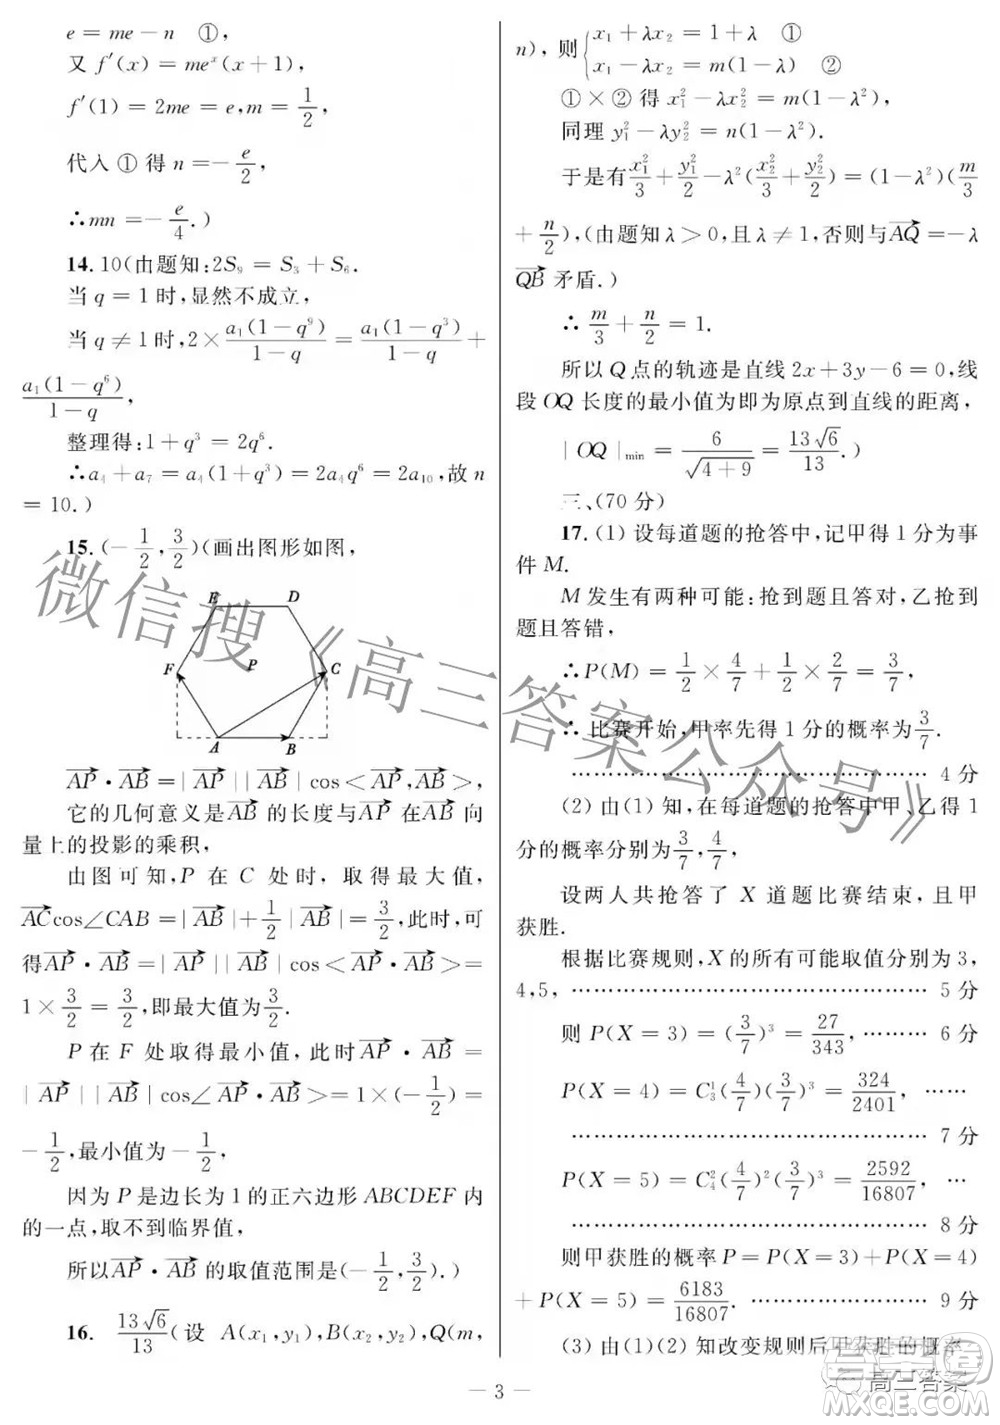 e = me − n ①,
又 f′(x) = meˣ(x+1),
f′(1) = 2me = e, m = 1/2,
代入①得 n = −e/2,
∴ mn = −e/4.)
14. 10(由题知:2S₉ = S₃ + S₆.
当 q = 1 时,显然不成立,
当 q ≠ 1 时,2 × a₁(1−q⁹)/(1−q) = a₁(1−q³)/(1−q) +
a₁(1−q⁶)/(1−q),
整理得:1 + q³ = 2q⁶.
∴ a₄ + a₇ = a₄(1+q³) = 2a₄q⁶ = 2a₁₀,故 n
= 10.)
15. (−1/2, 3/2)(画出图形如图,
E D
F P C
A B
AP→ · AB→ = |AP→||AB→|cos<AP→,AB→>,
它的几何意义是AB→的长度与AP→在AB→向
量上的投影的乘积,
由图可知,P 在 C 处时,取得最大值,
AC→cos∠CAB = |AB→| + 1/2|AB→| = 3/2,此时,可
得AP→ · AB→ = |AP→||AB→|cos<AP→ · AB→> =
1 × 3/2 = 3/2,即最大值为3/2.
P 在 F 处取得最小值,此时AP→ · AB→ =
|AP→||AB→|cos∠AP→ · AB→> = 1×(−1/2) =
−1/2,最小值为−1/2,
因为 P 是边长为 1 的正六边形 ABCDEF 内
的一点,取不到临界值,
所以AP→ · AB→的取值范围是(−1/2, 3/2).)
16. 13√6/13(设 A(x₁,y₁),B(x₂,y₂),Q(m,
n),则{x₁ + λx₂ = 1 + λ ①
x₁ − λx₂ = m(1−λ) ②
①×②得 x₁² − λx₂² = m(1−λ²),
同理 y₁² − λy₂² = n(1−λ²).
于是有 x₁²/3 + y₁²/2 − λ²(x₂²/3 + y₂²/2) = (1−λ²)(m/3
+ n/2),(由题知 λ > 0,且 λ ≠ 1,否则与AQ→ = −λ
QB→矛盾.)
∴ m/3 + n/2 = 1.
所以 Q 点的轨迹是直线 2x + 3y − 6 = 0,线
段 OQ 长度的最小值为即为原点到直线的距离,
|OQ|min = 6/√(4+9) = 13√6/13.)
三、(70 分)
17. (1) 设每道题的抢答中,记甲得 1 分为事
件 M.
M 发生有两种可能:抢到题且答对,乙抢到
题且答错,
∴ P(M) = 1/2 × 4/7 + 1/2 × 2/7 = 3/7,
∴ 比赛开始,甲率先得 1 分的概率为3/7.
………………………………………… 4 分
(2) 由(1) 知,在每道题的抢答中甲、乙得 1
分的概率分别为3/7, 4/7,
设两人共抢答了 X 道题比赛结束,且甲
获胜.
根据比赛规则,X 的所有可能取值分别为 3,
4,5, ………………………………………… 5 分
则 P(X = 3) = (3/7)³ = 27/343, ……… 6 分
P(X = 4) = C₃¹(4/7)(3/7)³ = 324/2401, ……
………………………………………… 7 分
P(X = 5) = C₄²(4/7)²(3/7)³ = 2592/16807, …
………………………………………… 8 分
则甲获胜的概率 P = P(X = 3) + P(X = 4)
+ P(X = 5) = 6183/16807. ……………… 9 分
(3) 由(1)(2) 知改变规则后甲获胜的概率
— 3 —
微信搜《高三答案公众号》
高三答案